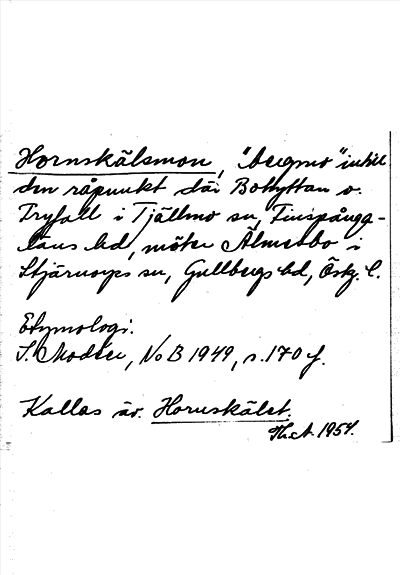 Hornskälsmon, "bergmo" intill
den råpunkt där Bohyttan o.
Fryfall i Tjällmo sn, Finspånga-
läns hd, möter Älmesbo i
Stjärnorps sn, Gullbergs hd, Östg. l.
Etymologi.
I. Modéer, NoB 1949, s. 170 f.
Kallas äv. Hornskälet.
Th. A. 1954.